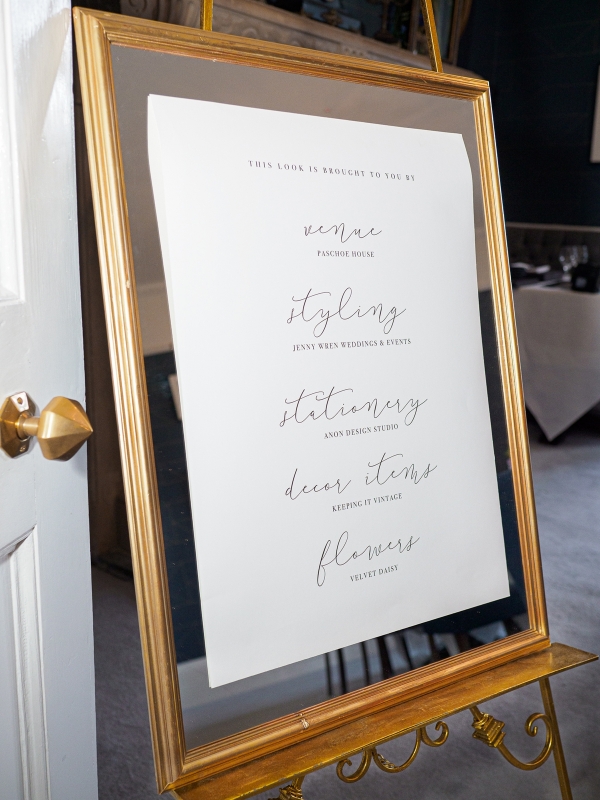 THIS LOOK IS BROUGHT TO YOU BY
venue
PASCHOE HOUSE
styling
JENNY WREN WEDDINGS & EVENTS
stationery
ANON DESIGN STUDIO
decor items
KEEPING IT VINTAGE
flowers
VELVET DAISY